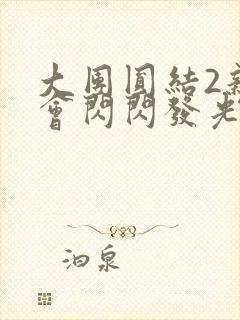 大团圓結2新
會閃閃發光
泊泉